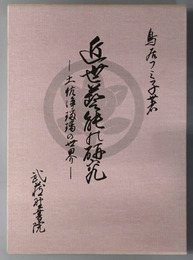 鳥居フミ子著
近世芸能の研究
―土佐浄瑠璃の世界―
武蔵野書院